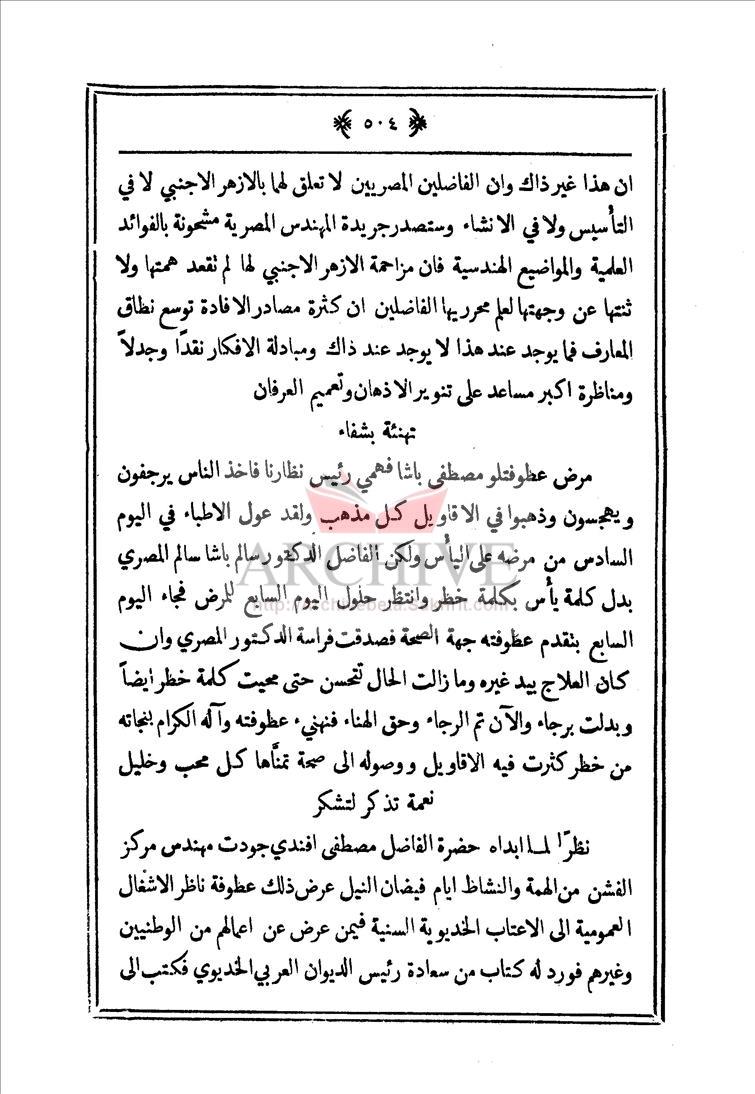 ﴿ ٥٠٤ ﴾
ان هذا غير ذاك وان الفاضلين المصريين لا تعلق لهما بالازهر الاجنبي لا في
التأسيس ولا في الانشاء وستصدر جريدة المهندس المصرية مشحونة بالفوائد
العلمية والمواضيع الهندسية فان مزاحمة الازهر الاجنبي لها لم تقعد همتها ولا
ثنتها عن وجهتها لعلم محرريها الفاضلين ان كثرة مصادر الافادة توسع نطاق
المعارف فما يوجد عند هذا لا يوجد عند ذاك ومبادلة الافكار نقدًا وجدلاً
ومناظرة اكبر مساعد على تنوير الاذهان وتعميم العرفان
تهنئة بشفاء
مرض عطوفتلو مصطفى باشا فهمي رئيس نظارنا فاخذ الناس يرجفون
ويهجسون وذهبوا في الاقاويل كل مذهب ولقد عول الاطباء في اليوم
السادس من مرضه على اليأس ولكن الفاضل الدكتور سالم باشا سالم المصري
بدل كلمة يأس بكلمة خطر وانتظر حلول اليوم السابع للمرض فجاء اليوم
السابع بتقدم عطوفته جهة الصحة فصدقت فراسة الدكتور المصري وان
كان العلاج بيد غيره وما زالت الحال تتحسن حتى محيت كلمة خطر ايضاً
وبدلت برجاء والآن تم الرجاء وحق الهناء فنهنيء عطوفته وآله الكرام بنجاته
من خطر كثرت فيه الاقاويل ووصوله الى صحة تمنَّاها كل محب وخليل
نعمة تذكر لتشكر
نظرًا لما ابداه حضرة الفاضل مصطفى افندي جودت مهندس مركز
الفشن من الهمة والنشاط ايام فيضان النيل عرض ذلك عطوفة ناظر الاشغال
العمومية الى الاعتاب الخديوية السنية فيمن عرض عن اعمالهم من الوطنيين
وغيرهم فورد له كتاب من سعادة رئيس الديوان العربي الخديوي فكتب الى
ARCHIVE